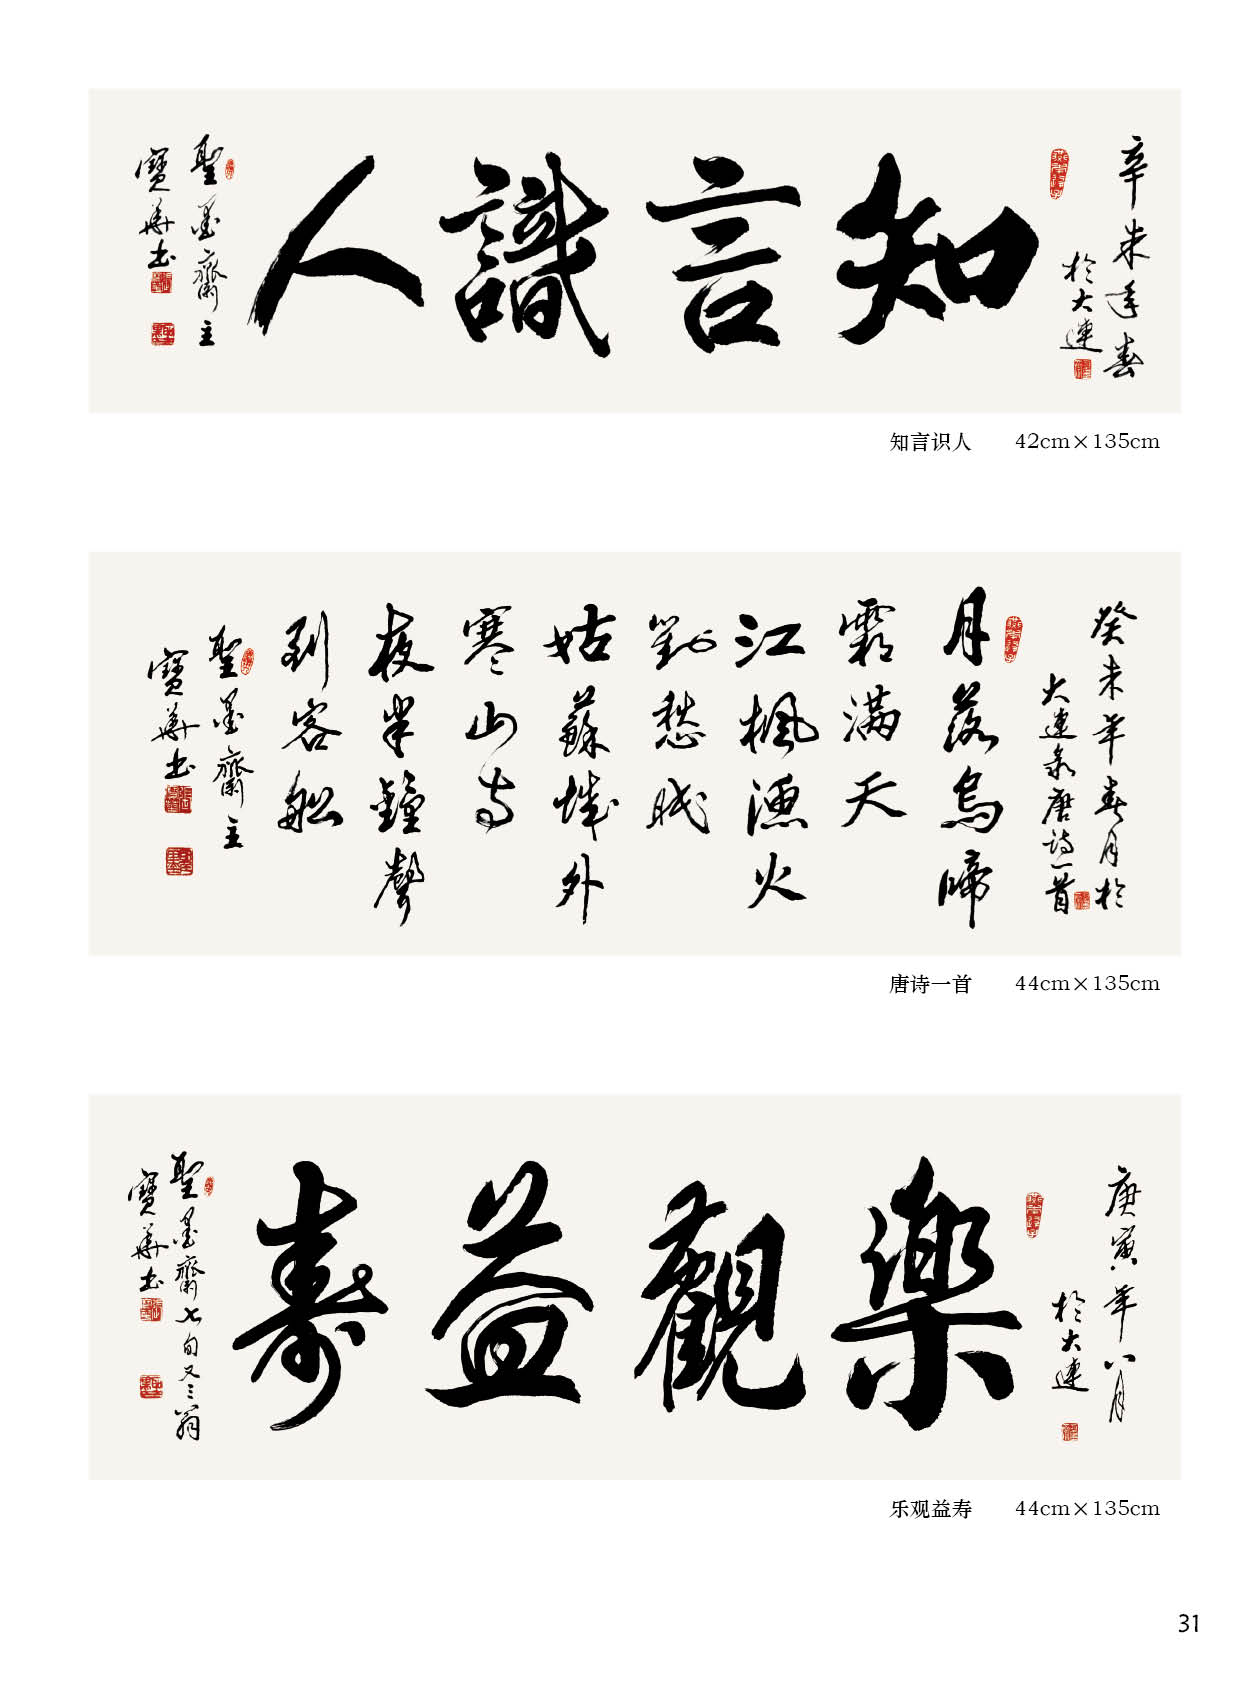 辛未年春
於大連
知言識人
聖墨齋主
寶華书
知言识人 42cm×135cm
癸未年春月於
大連录唐詩一首
月落烏啼
霜满天
江楓漁火
對愁眠
姑蘇城外
寒山寺
夜半鐘聲
到客船
聖墨齋主
寶華书
唐诗一首 44cm×135cm
庚寅年八月
於大連
樂觀益寿
聖墨齋七旬又三翁
寶華书
乐观益寿 44cm×135cm
31